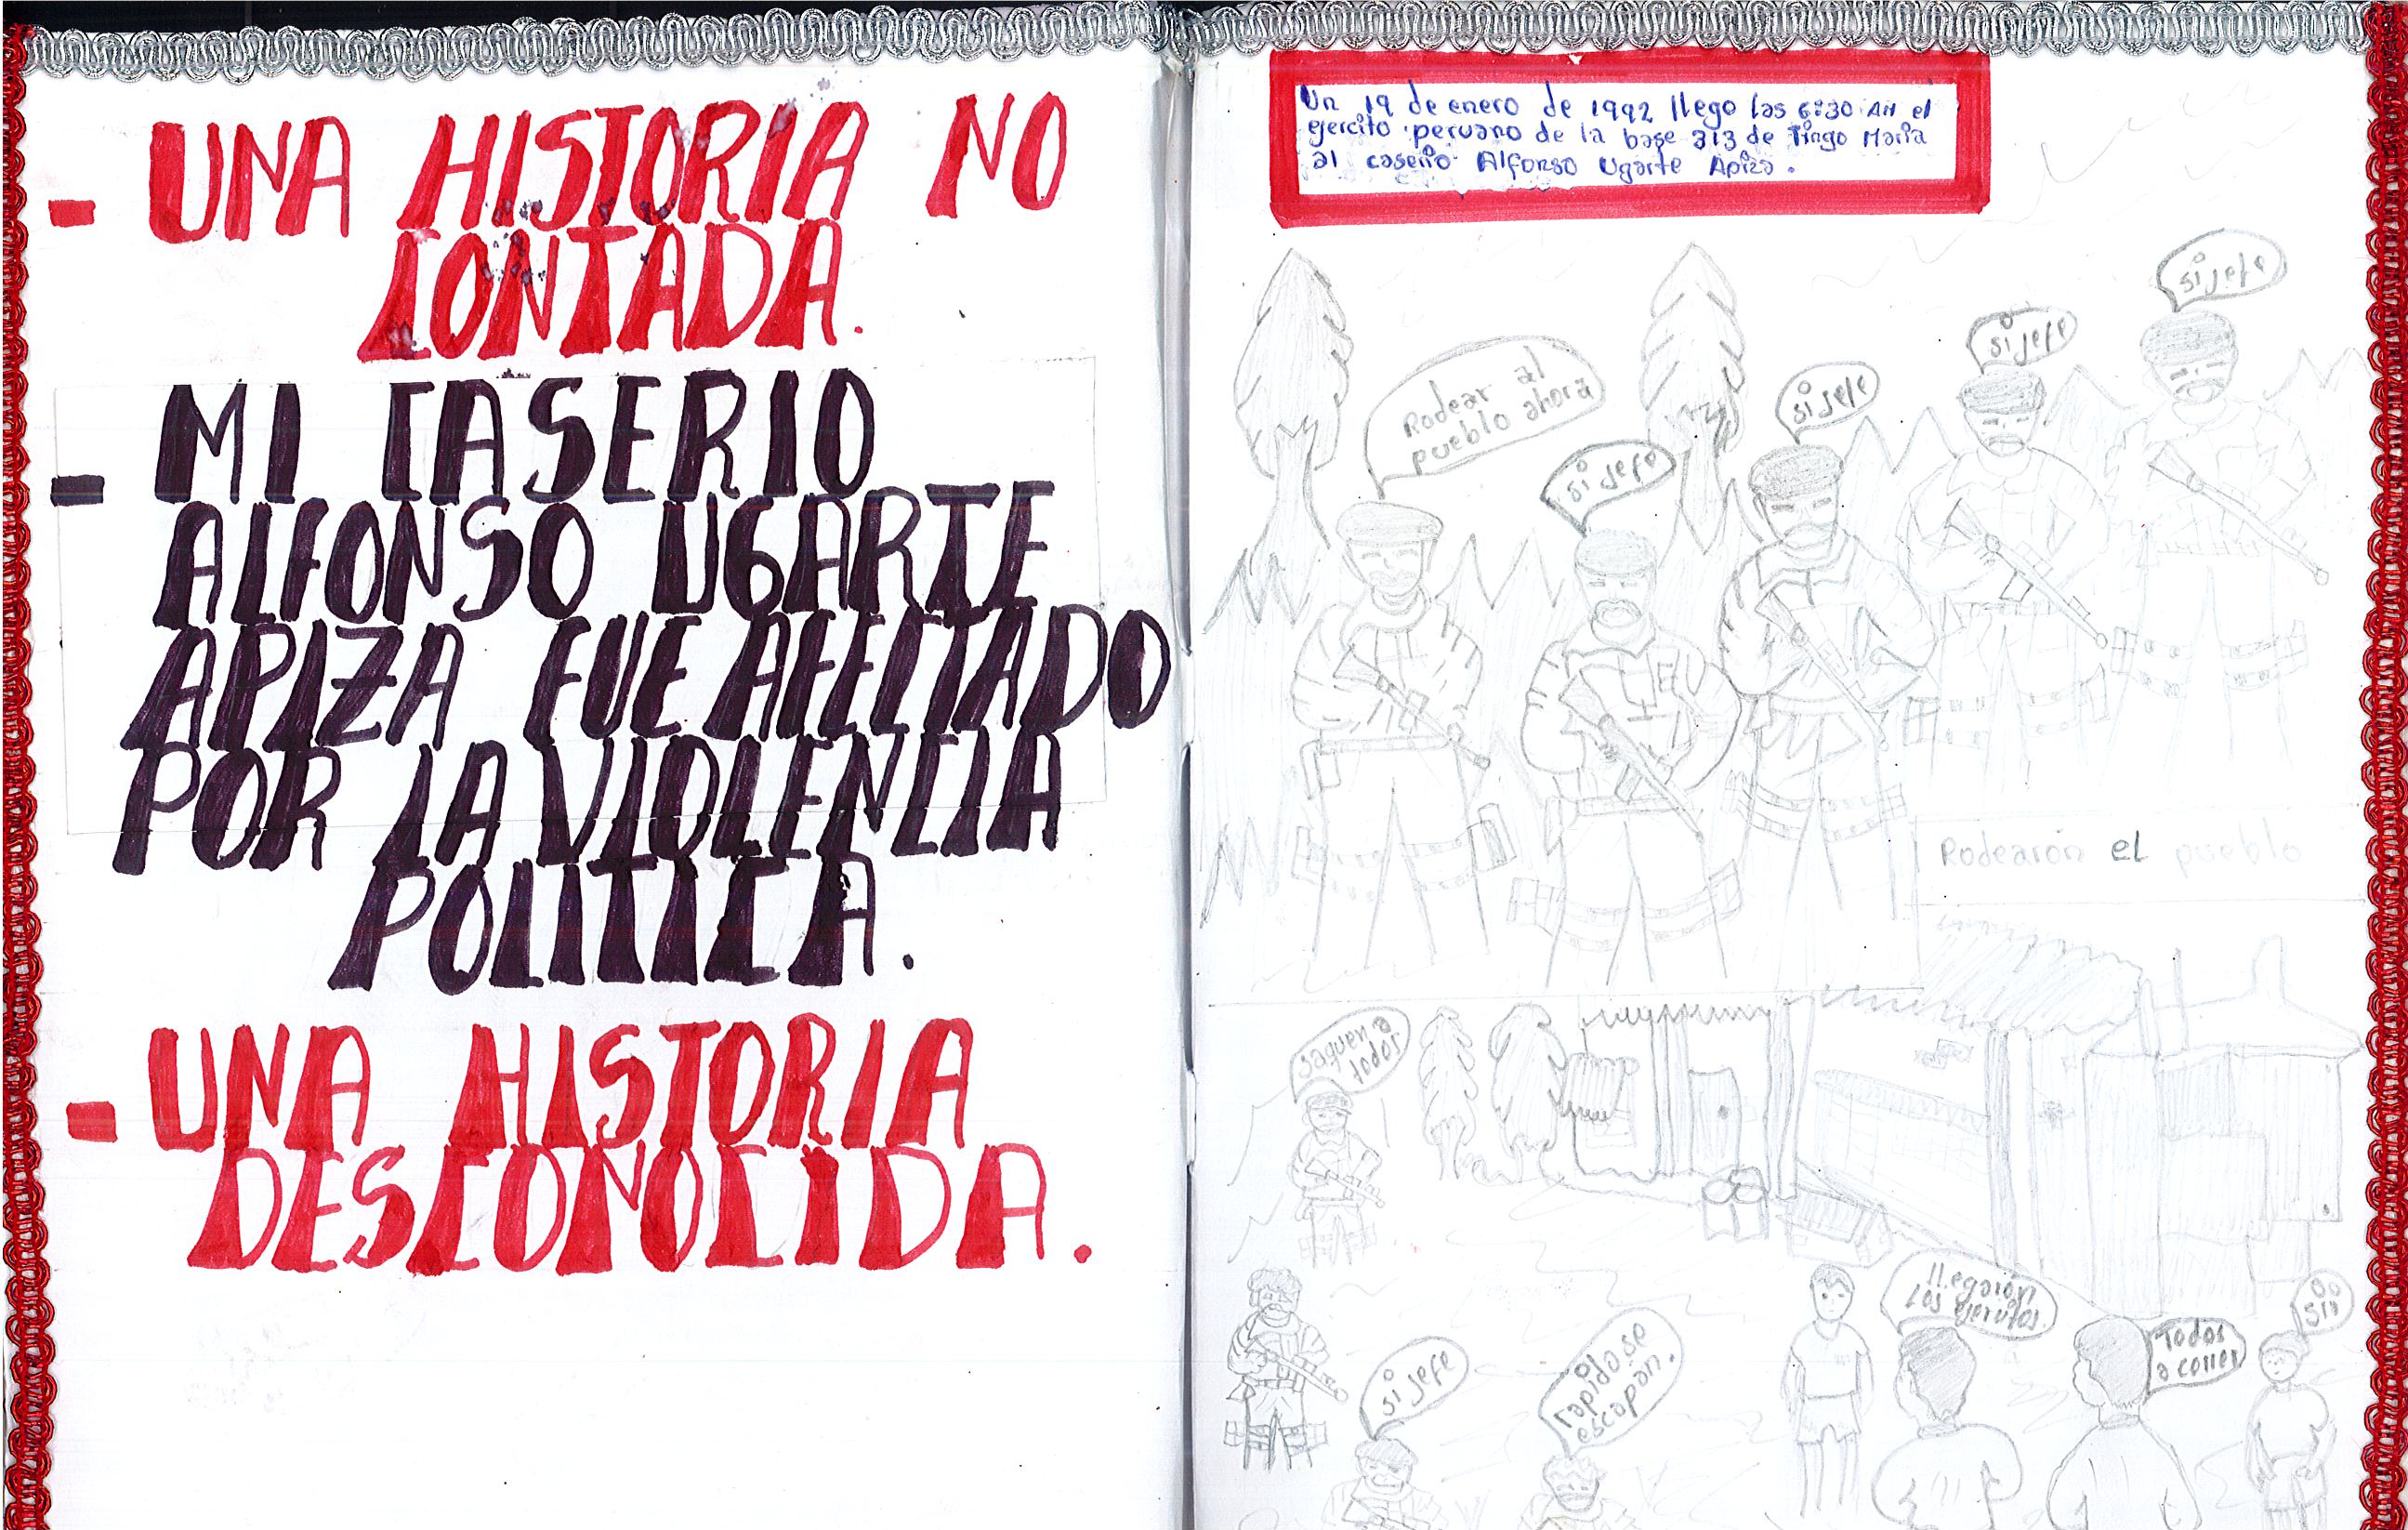 - UNA HISTORIA NO
CONTADA.
- MI CASERIO
ALFONSO UGARTE
APIZA FUE AFECTADO
POR LA VIOLENCIA
POLITICA.
- UNA HISTORIA
DESCONOCIDA.
Un 19 de enero de 1992 llego las 6:30 AM el
ejercito peruano de la base 313 de Tingo Maria
al caserio Alfonso Ugarte Apiza.
Rodear al
pueblo ahora
si jefe
si jefe
si jefe
si jefe
Rodearón el pueblo
saquen a
todos
si jefe
rapido se
escapan.
llegarón
los ejercitos
Todos
a correr